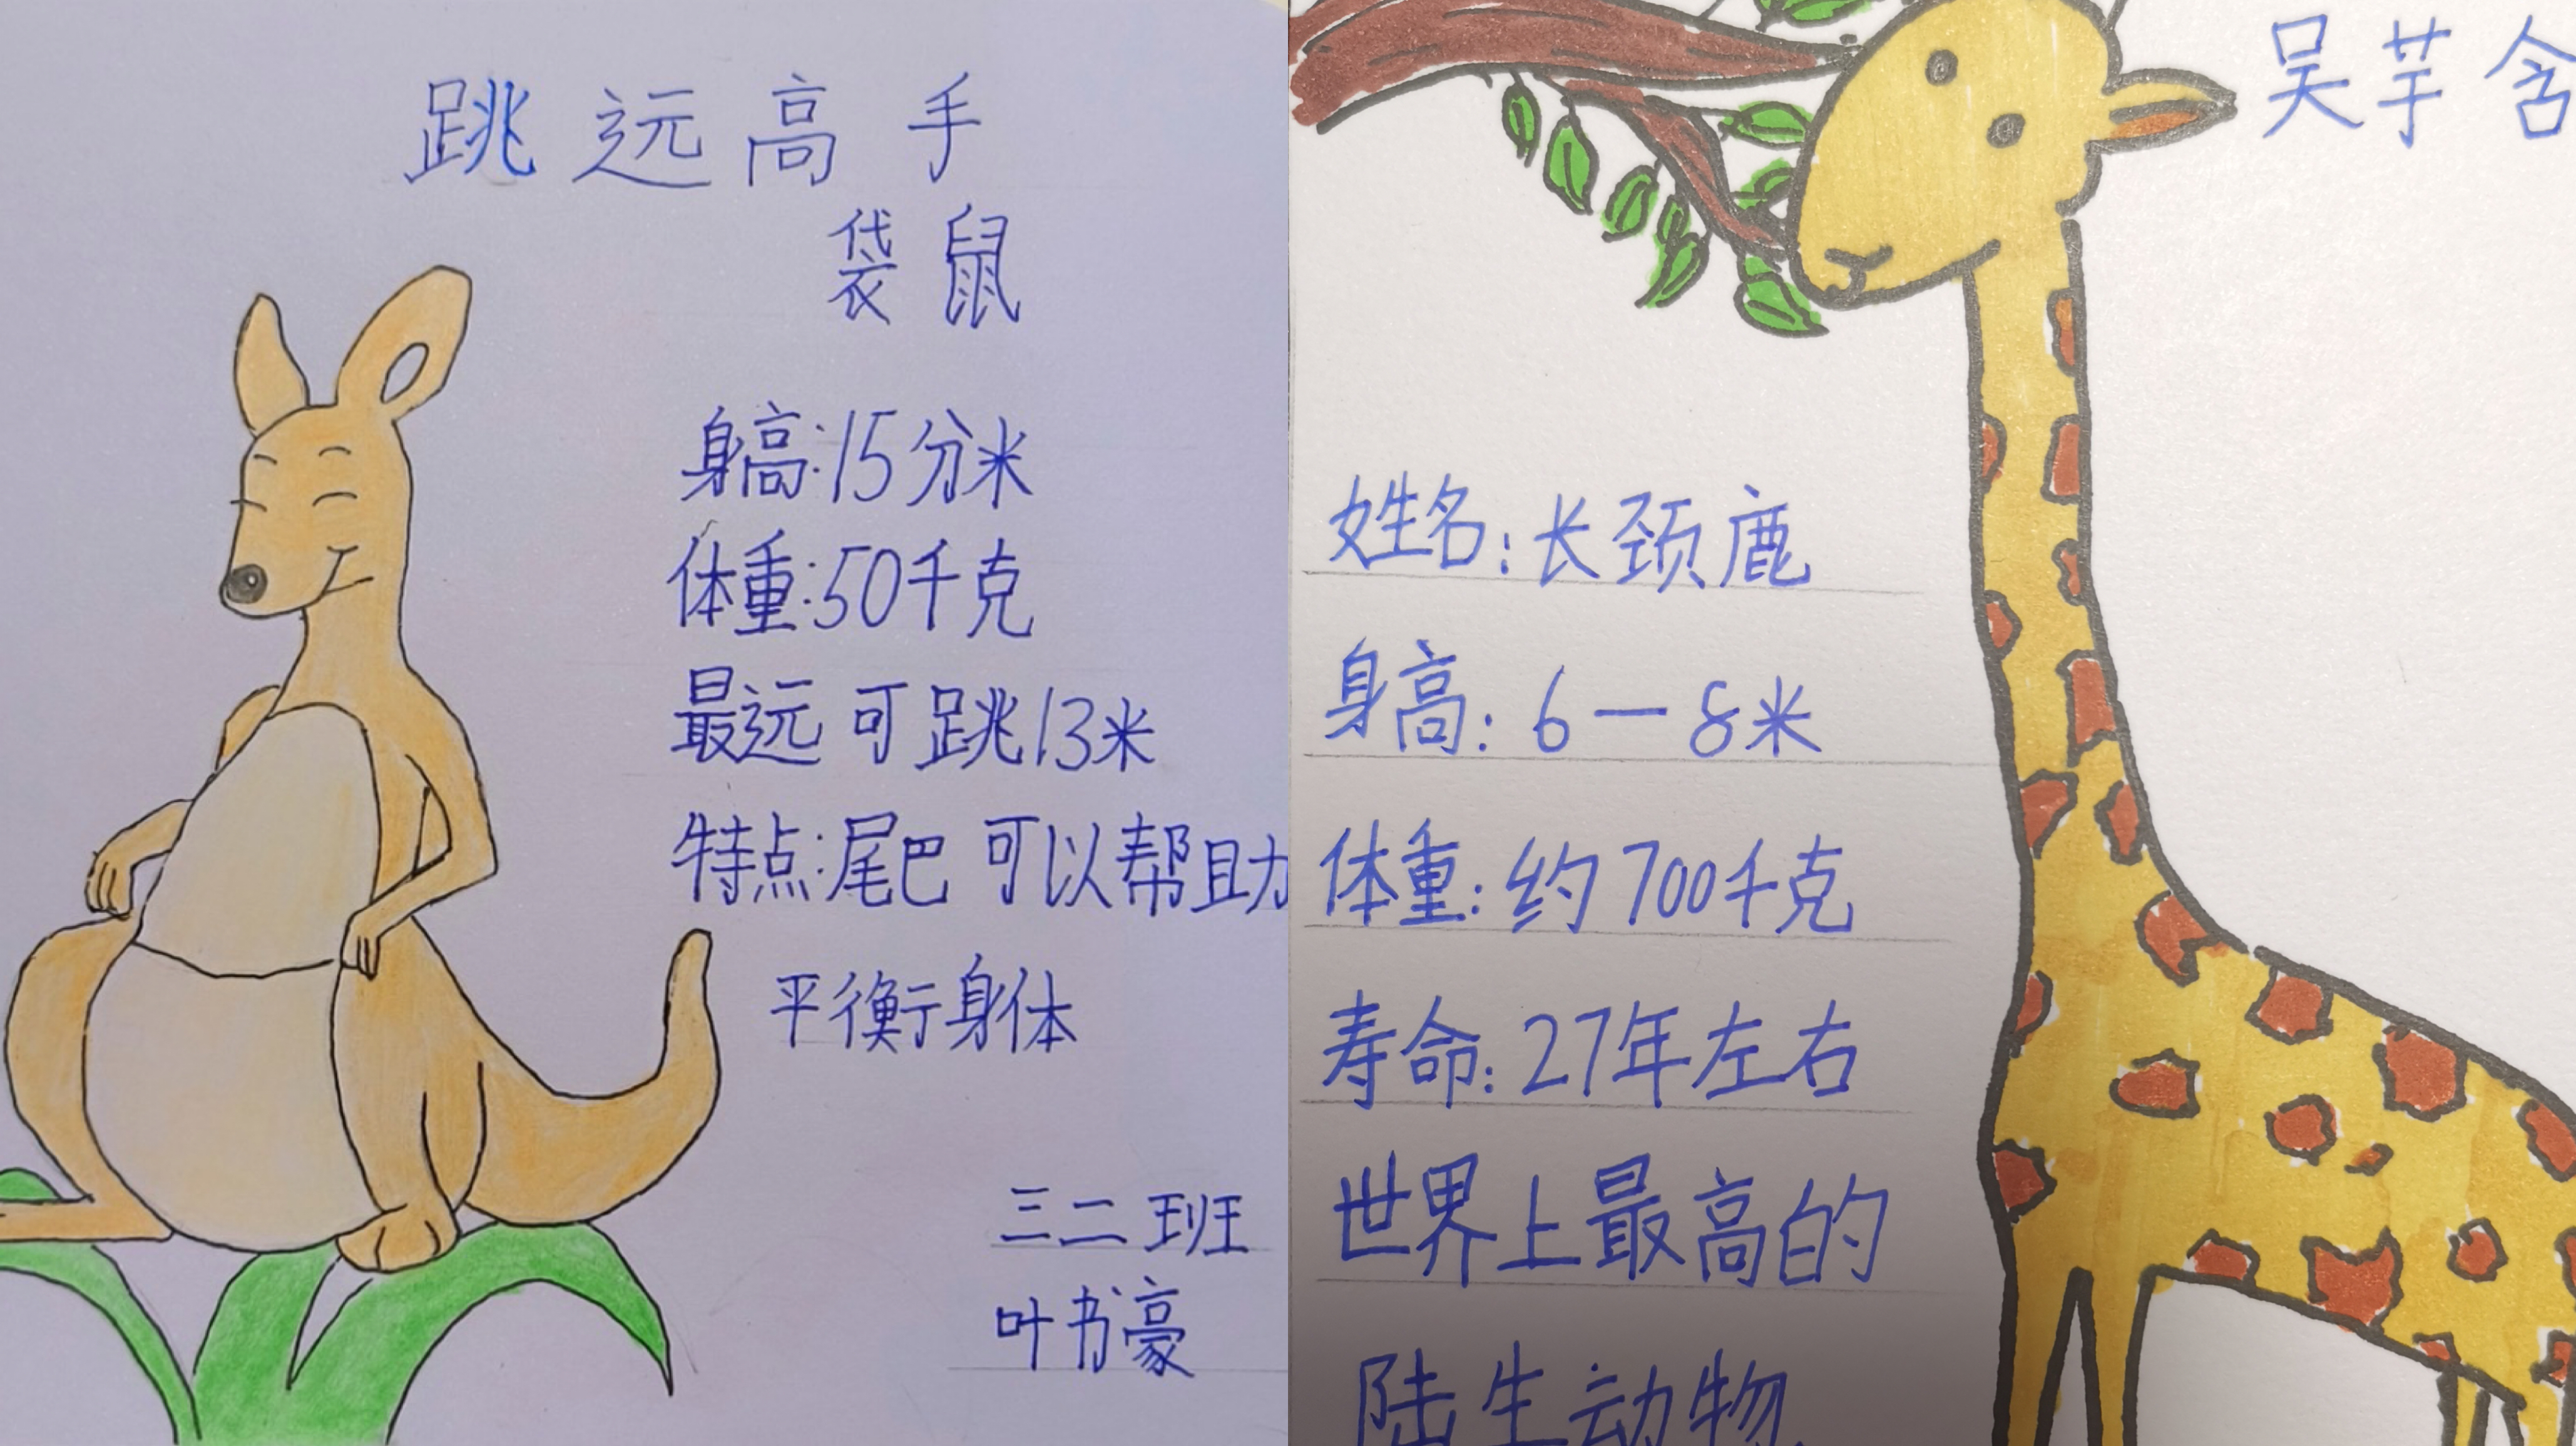 跳远高手
袋鼠
身高:15分米
体重:50千克
最远可跳13米
特点:尾巴可以帮助
平衡身体
三二班
叶书豪
吴芋含
姓名:长颈鹿
身高:6—8米
体重:约700千克
寿命:27年左右
世界上最高的
陆生动物